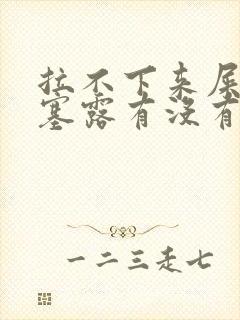 拉不下来屎
塞露有没有
一二三走七